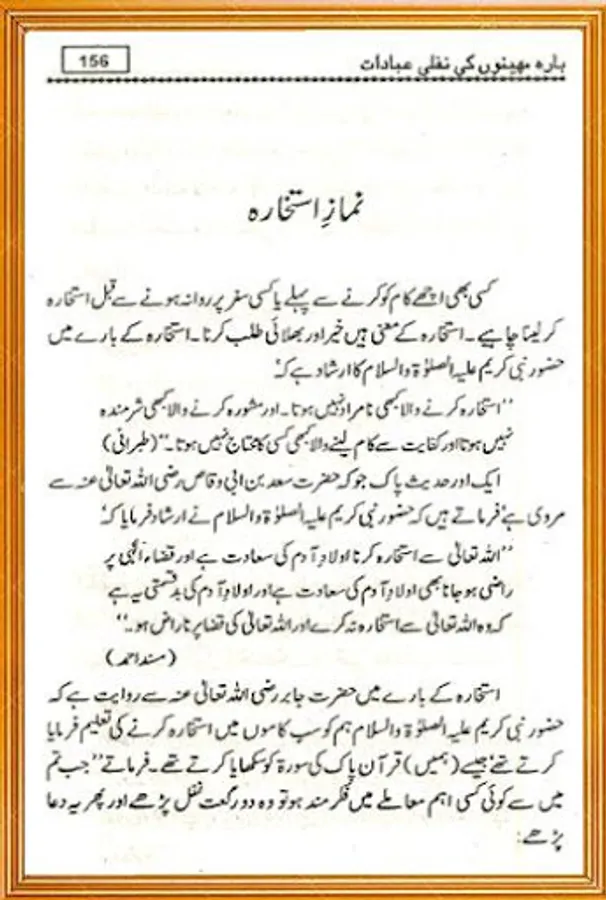 بارہ مہینوں کی نفلی عبادات
156
نمازِ استخارہ
کسی بھی اچھے کام کو کرنے سے پہلے یا کسی سفر پر روانہ ہونے سے قبل استخارہ
کر لینا چاہیے۔ استخارہ کے معنی ہیں خیر اور بھلائی طلب کرنا۔ استخارہ کے بارے میں
حضور نبی کریم علیہ الصلوٰۃ والسلام کا ارشاد ہے کہ
”استخارہ کرنے والا کبھی نامراد نہیں ہوتا۔ اور مشورہ کرنے والا کبھی شرمندہ
نہیں ہوتا اور کفایت سے کام لینے والا کبھی کسی کا محتاج نہیں ہوتا۔“ (طبرانی)
ایک اور حدیث پاک جو کہ حضرت سعد بن ابی وقاص رضی اللہ تعالیٰ عنہ سے
مروی ہے فرماتے ہیں کہ حضور نبی کریم علیہ الصلوٰۃ والسلام نے ارشاد فرمایا کہ
”اللہ تعالیٰ سے استخارہ کرنا اولادِ آدم کی سعادت ہے اور قضاء الٰہی پر
راضی ہو جانا بھی اولادِ آدم کی سعادت ہے اور اولادِ آدم کی بدقسمتی یہ ہے
کہ وہ اللہ تعالیٰ سے استخارہ نہ کرے اور اللہ تعالیٰ کی قضا پر ناراض ہو۔“
(مسند احمد)
استخارہ کے بارے میں حضرت جابر رضی اللہ تعالیٰ عنہ سے روایت ہے کہ
حضور نبی کریم علیہ الصلوٰۃ والسلام ہم کو سب کاموں میں استخارہ کرنے کی تعلیم فرمایا
کرتے تھے جیسے (ہمیں) قرآن پاک کی سورۃ کو سکھایا کرتے تھے۔ فرماتے ”جب تم
میں سے کوئی کسی اہم معاملے میں فکر مند ہو تو وہ دو رکعت نفل پڑھے اور پھر یہ دعا
پڑھے: